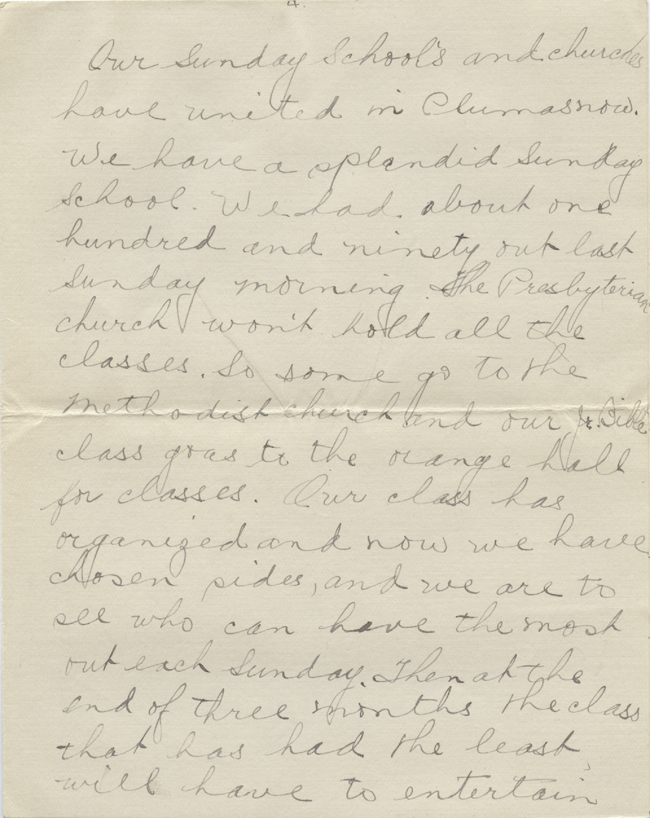 4.
Our Sunday School's and churches
have united in Clumas now.
We have a splendid Sunday
school. We had about one
hundred and ninety out last
Sunday morning. The Presbyterian
church won't hold all the
classes. So some go to the
Methodist church and our Jr. Bible
class goas to the orange hall
for classes. Our class has
organized and now we have
chosen sides, and we are to
see who can have the most
out each Sunday. Then at the
end of three months the class
that has had the least,
will have to entertain